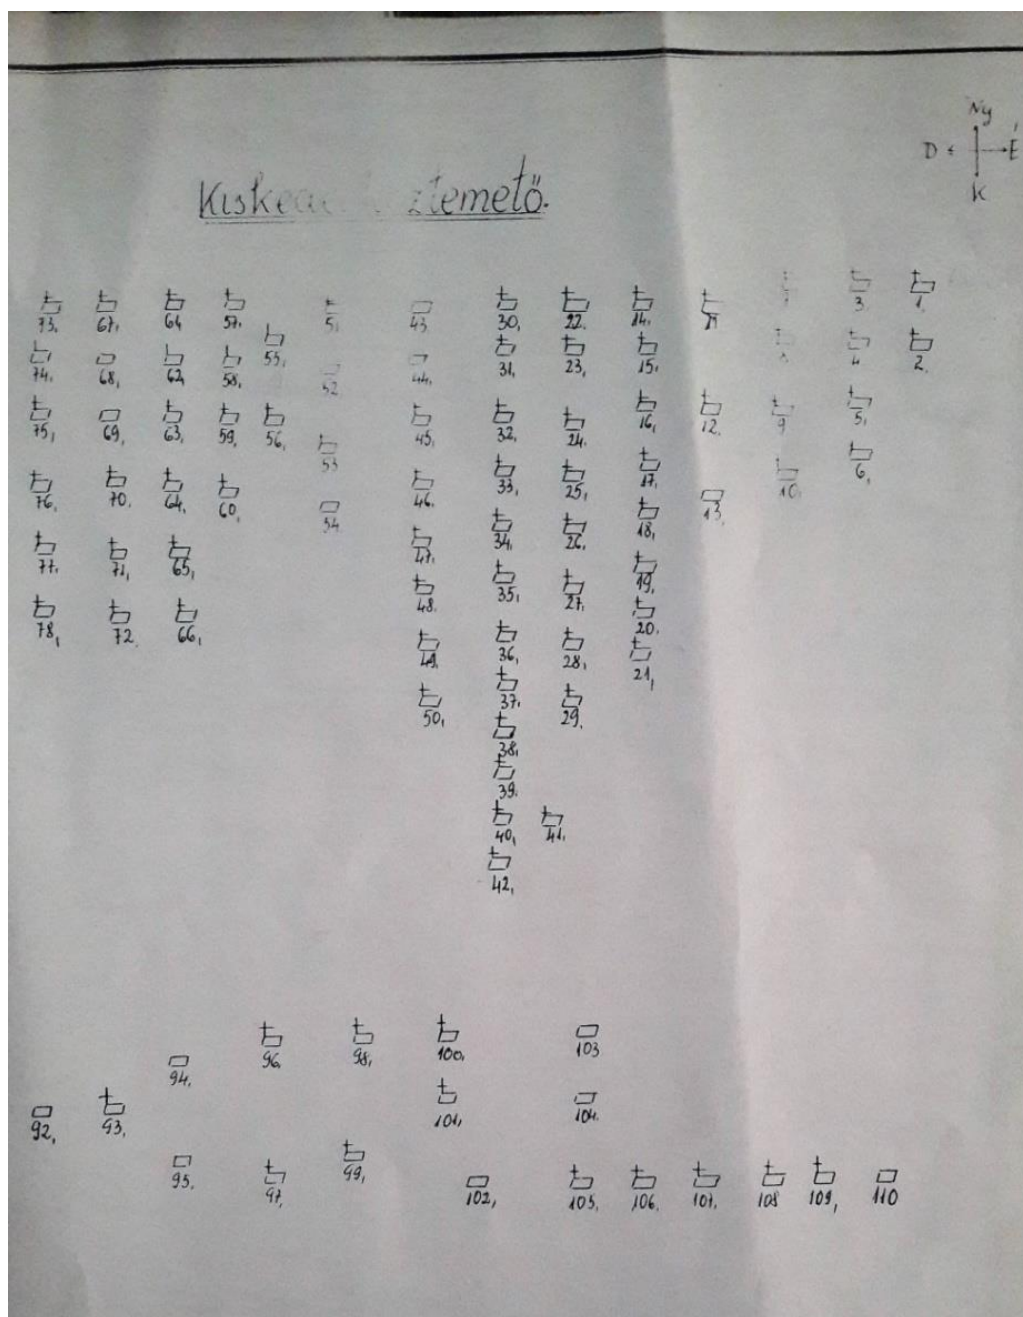 Ny
D É
K
temető.
73, 67, 64, 57, 5, 43, 30, 22, 14, 3, 1,
55,
74, 68, 62, 58, 52 44, 31, 23, 15, 4 2,
75, 69, 63, 59, 56, 53 45, 32, 24, 16, 12, 9 5,
76, 70, 64, 60, 54 46, 33, 25, 17, 13, 10, 6,
77, 71, 65, 47, 34, 26, 18,
78, 72, 66, 48, 35, 27, 19,
49, 36, 28, 20,
50, 37, 29, 21,
38,
39,
40, 41,
42,
96, 98, 100, 103
94,
92, 93, 101, 104
95, 97, 99, 102, 105, 106, 107, 108 109, 110